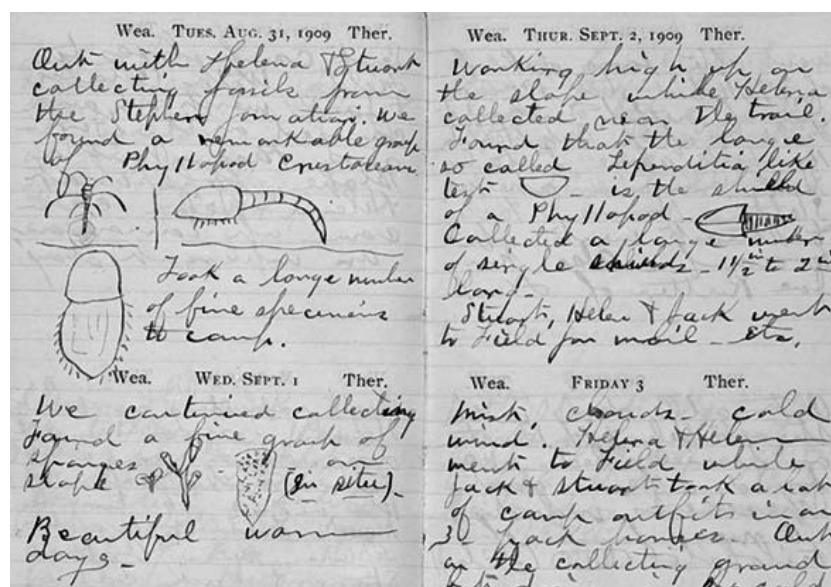 Wea. TUES. AUG. 31, 1909 Ther.
Out with Helena & Stuart
collecting fossils from
the Stephen formation. We
found a remarkable group
of Phyllopod Crustaceans
Took a large number
of fine specimens
to camp.
Wea. WED. SEPT. 1 Ther.
We continued collecting
Found a fine group of
sponges on
slope (in situ) -
Beautiful warm
days -
Wea. THUR. SEPT. 2, 1909 Ther.
Working high up on
the slope while Helena
collected near the trail.
Found that the large
so called Leperditia like
test - is the shield
of a Phyllopod -
Collected a large number
of single shields - 1 1/2 in to 2 in
long -
Stuart, Helen & Jack went
to Field for mail - etc.
Wea. FRIDAY 3 Ther.
Mist, clouds - cold
wind. Helena & Helen
went to Field while
Jack & Stuart took a lot
of camp outfits in on
3 - pack horses - Out
on the collecting ground